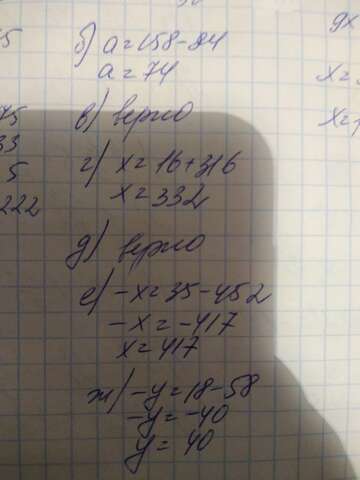 б) a=158-84
a=74
в) верно
г) x=16+316
x=332
д) верно
е) -x=35-452
-x=-417
x=417
ж) -y=18-58
-y=-40
y=40
75
33
5
222